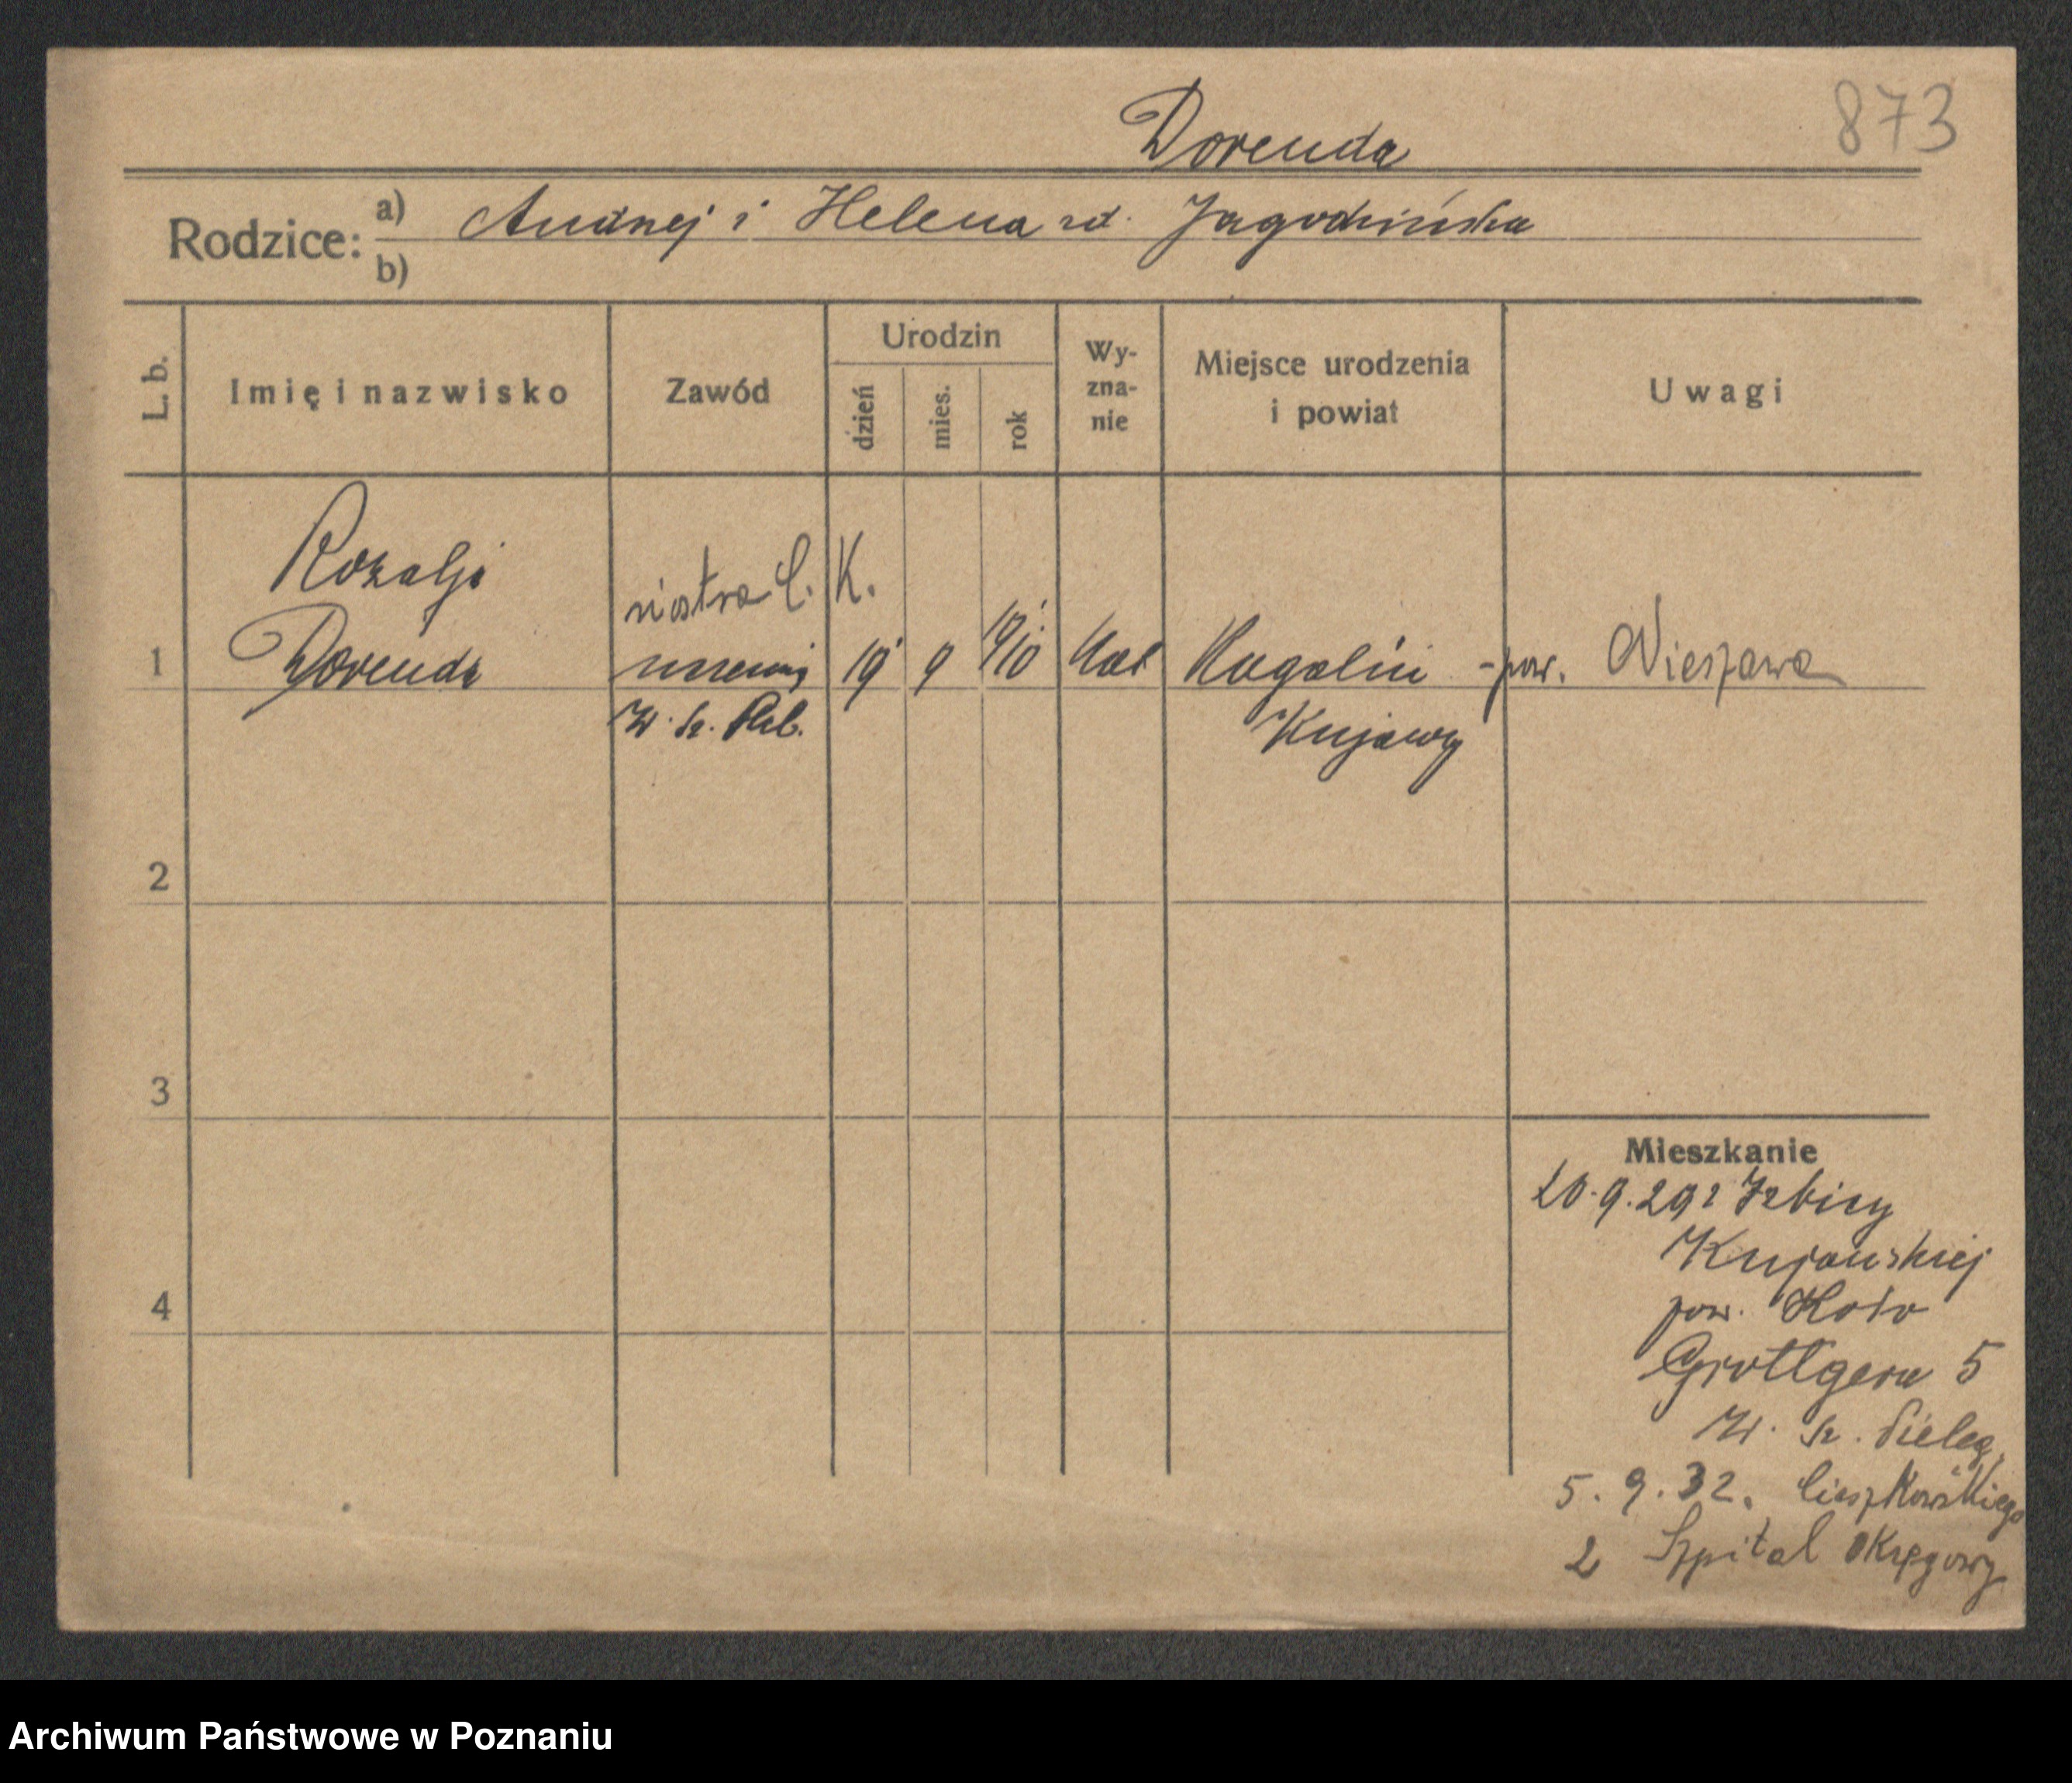 Dorenda
873
Rodzice: a) Andrzej i Helena rd. Jagodzińska
b)
L. b.
Imię i nazwisko
Zawód
Urodzin
dzień
mies.
rok
Wy-
zna-
nie
Miejsce urodzenia
i powiat
Uwagi
Rozalja
siostra C. K.
1 Dorenda 19 9 1910 Kat Rogalin - pow. Nieszawa
Kujawy
2
3
4
Mieszkanie
20.9.29 z Izbicy
Kujawskiej
pow. Koło
Grottgera 5
Pieleg.
5.9.32. Cieszkowskiego
2 Szpital Okręgowy
Archiwum Państwowe w Poznaniu